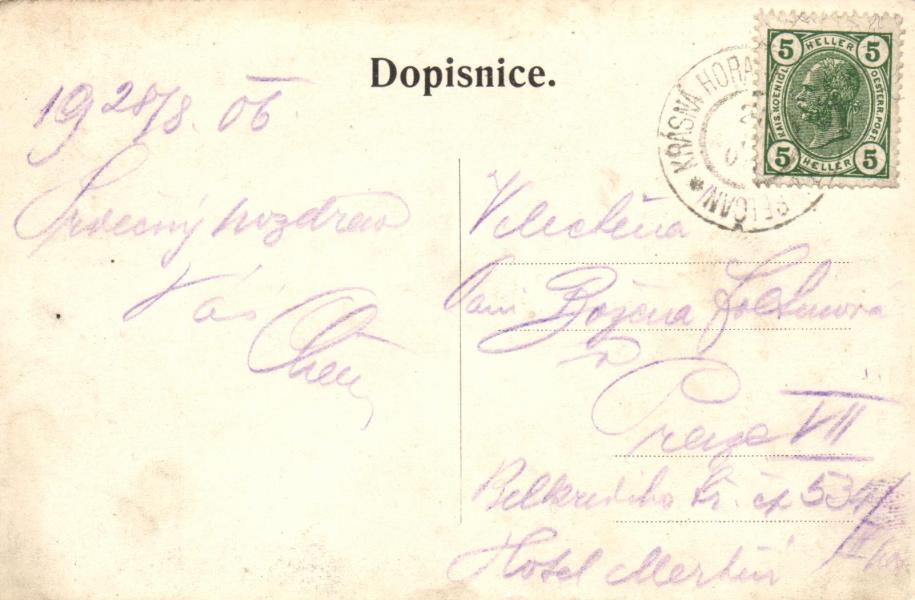 Dopisnice.
19 28/8. 06
Srdečný pozdrav
Vás
KRÁSNÁ HORA
5 HELLER 5
KAIS. KOENIGL. OESTERR. POST.
5 HELLER 5
Velectěná
Paní Božena
v
Praze VII
Belkrediho tř. čp 534/
Hotel